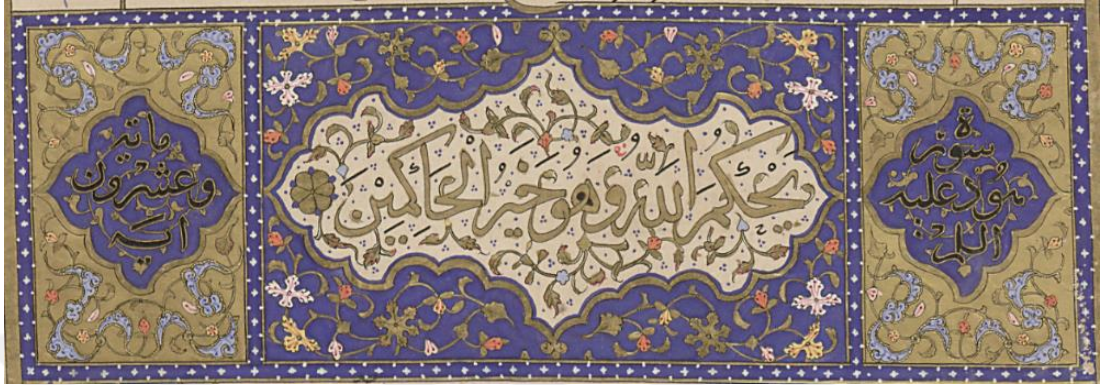 سورة
هود عليه
السلم
يحكم الله وهو خير الحاكمين
ماية
وعشرون
اية